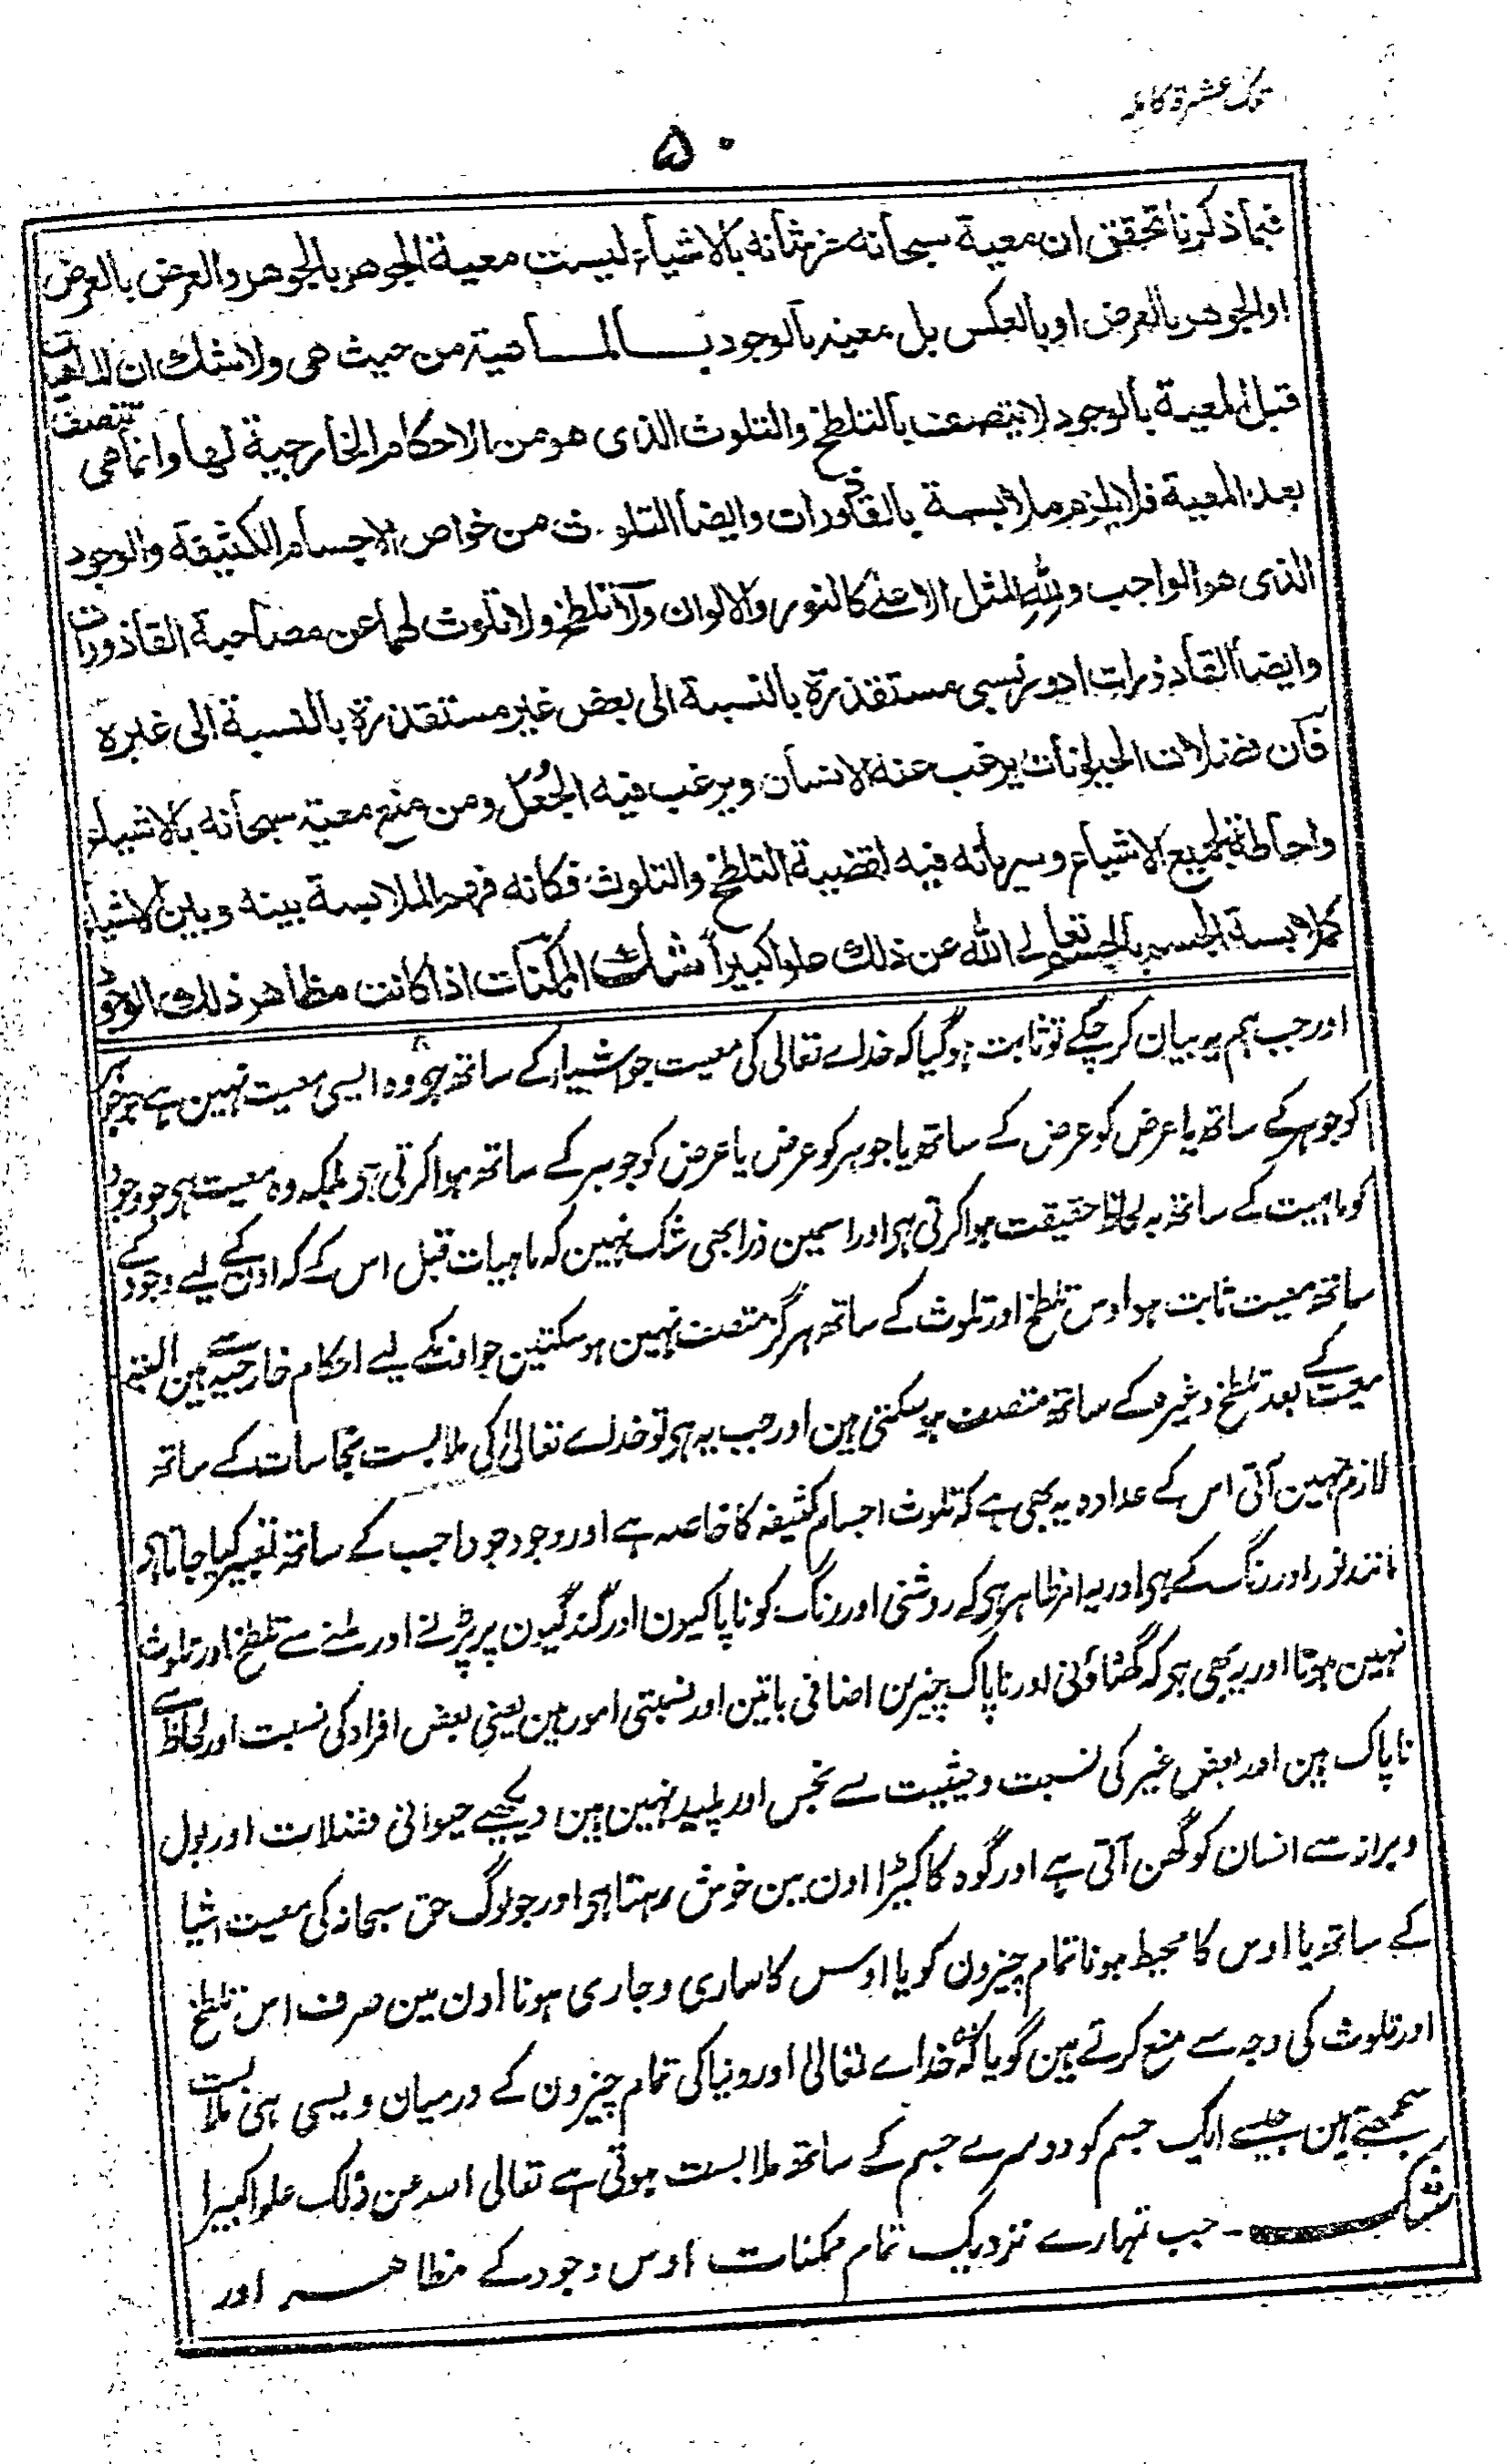 عشرة كاملہ
۵۰
فبما ذكرنا تحقق ان معية سبحانه عز شانه بالاشياء ليست معية الجوهر بالجوهر والعرض بالعرض
او الجوهر بالعرض او بالعكس بل معية بالوجود بالماهية من حيث هى ولا شك ان الماهيات
قبل المعية بالوجود لا يتصف بالتلطخ والتلوث الذى هو من الاحكام الخارجية لها وانما هى تتصف
بعد المعية فلا يلزم ملابسة بالقاذورات وايضا التلوث من خواص الاجسام الكثيفة والوجود
الذى هو الواجب ولله المثل الاعلى كالنور والالوان ولا تلطخ ولا تلوث لهما عن مصاحبة القاذورات
وايضا القاذورات امور نسبى مستقذرة بالنسبة الى بعض غير مستقذرة بالنسبة الى غيره
فان فضلات الحيوانات يرغب عنه الانسان ويرغب فيه الجُعَل ومن منع معية سبحانه بالاشياء
واحاطة بجميع الاشياء وسريانه فيه لقضية التلطخ والتلوث فكانه فهم الملابسة بينه وبين الاشياء
كملابسة الجسم بالجسم تعالى الله عن ذلك علوا كبيراً شك الممكنات اذا كانت مظاهر ذلك الوجود
اور جب ہم یہ بیان کرچکے تو ثابت ہوگیا کہ خداے تعالی کی معیت جو اشیاء کے ساتھ ہی وہ ایسی معیت نہین ہے جو جوہر
کو جوہر کے ساتھ یا عرض کو عرض کے ساتھ یا جوہر کو عرض یا عرض کو جوہر کے ساتھ ہوا کرتی ہی بلکہ وہ معیت ہی جو وجود
کو ماہیت کے ساتھ بہ لحاظ حقیقت ہوا کرتی ہی اور اسمین ذرا بھی شک نہین کہ ماہیات قبل اس کے کہ اون کے لیے وجود کے
ساتھ معیت ثابت ہو اوس تلطخ اور تلوث کے ساتھ ہرگز متصف نہین ہو سکتین جو انکے لیے احکام خارجیہ سے ہین البتہ
معیت کے بعد تلطخ وغیرہ کے ساتھ متصف ہو سکتی ہین اور جب یہ ہی تو خداے تعالی کی ملابست نجاسات کے ساتھ
لازم نہین آتی اس کے علاوہ یہ بھی ہے کہ تلوث اجسام کثیفہ کا خاصہ ہے اور وجود جو واجب کے ساتھ تعبیر کیا جاتا ہی
مانند نور اور رنگ کے ہی اور یہ امر ظاہر ہی کہ روشنی اور رنگ کو ناپاکیون اور گندگیون پر پڑنے اور ملنے سے تلطخ اور تلوث
نہین ہوتا اور یہ بھی ہی کہ گھناؤنی اور ناپاک چیزین اضافی باتین اور نسبتی امور ہین یعنی بعض افراد کی نسبت اور لحاظ سے
ناپاک ہین اور بعض غیر کی نسبت و حیثیت سے نجس اور پلید نہین ہین دیکھیے حیوانی فضلات اور بول
و براز سے انسان کو گھن آتی ہے اور گوہ کا کیڑا اون مین خوش رہتا ہی اور جو لوگ حق سبحانہ کی معیت اشیا
کے ساتھ یا اوس کا محیط ہونا تمام چیزون کو یا اوس کا ساری و جاری ہونا اون مین صرف اس تلطخ
اور تلوث کی وجہ سے منع کرتے ہین گویا کہ خداے تعالی اور دنیا کی تمام چیزون کے درمیان ویسی ہی ملابست
سمجھتے ہین جیسے ایک جسم کو دوسرے جسم کے ساتھ ملابست ہوتی ہے تعالی اللہ عن ذلک علوا کبیرا
شک - جب تمہارے نزدیک تمام ممکنات اوس وجود کے مظاہر اور